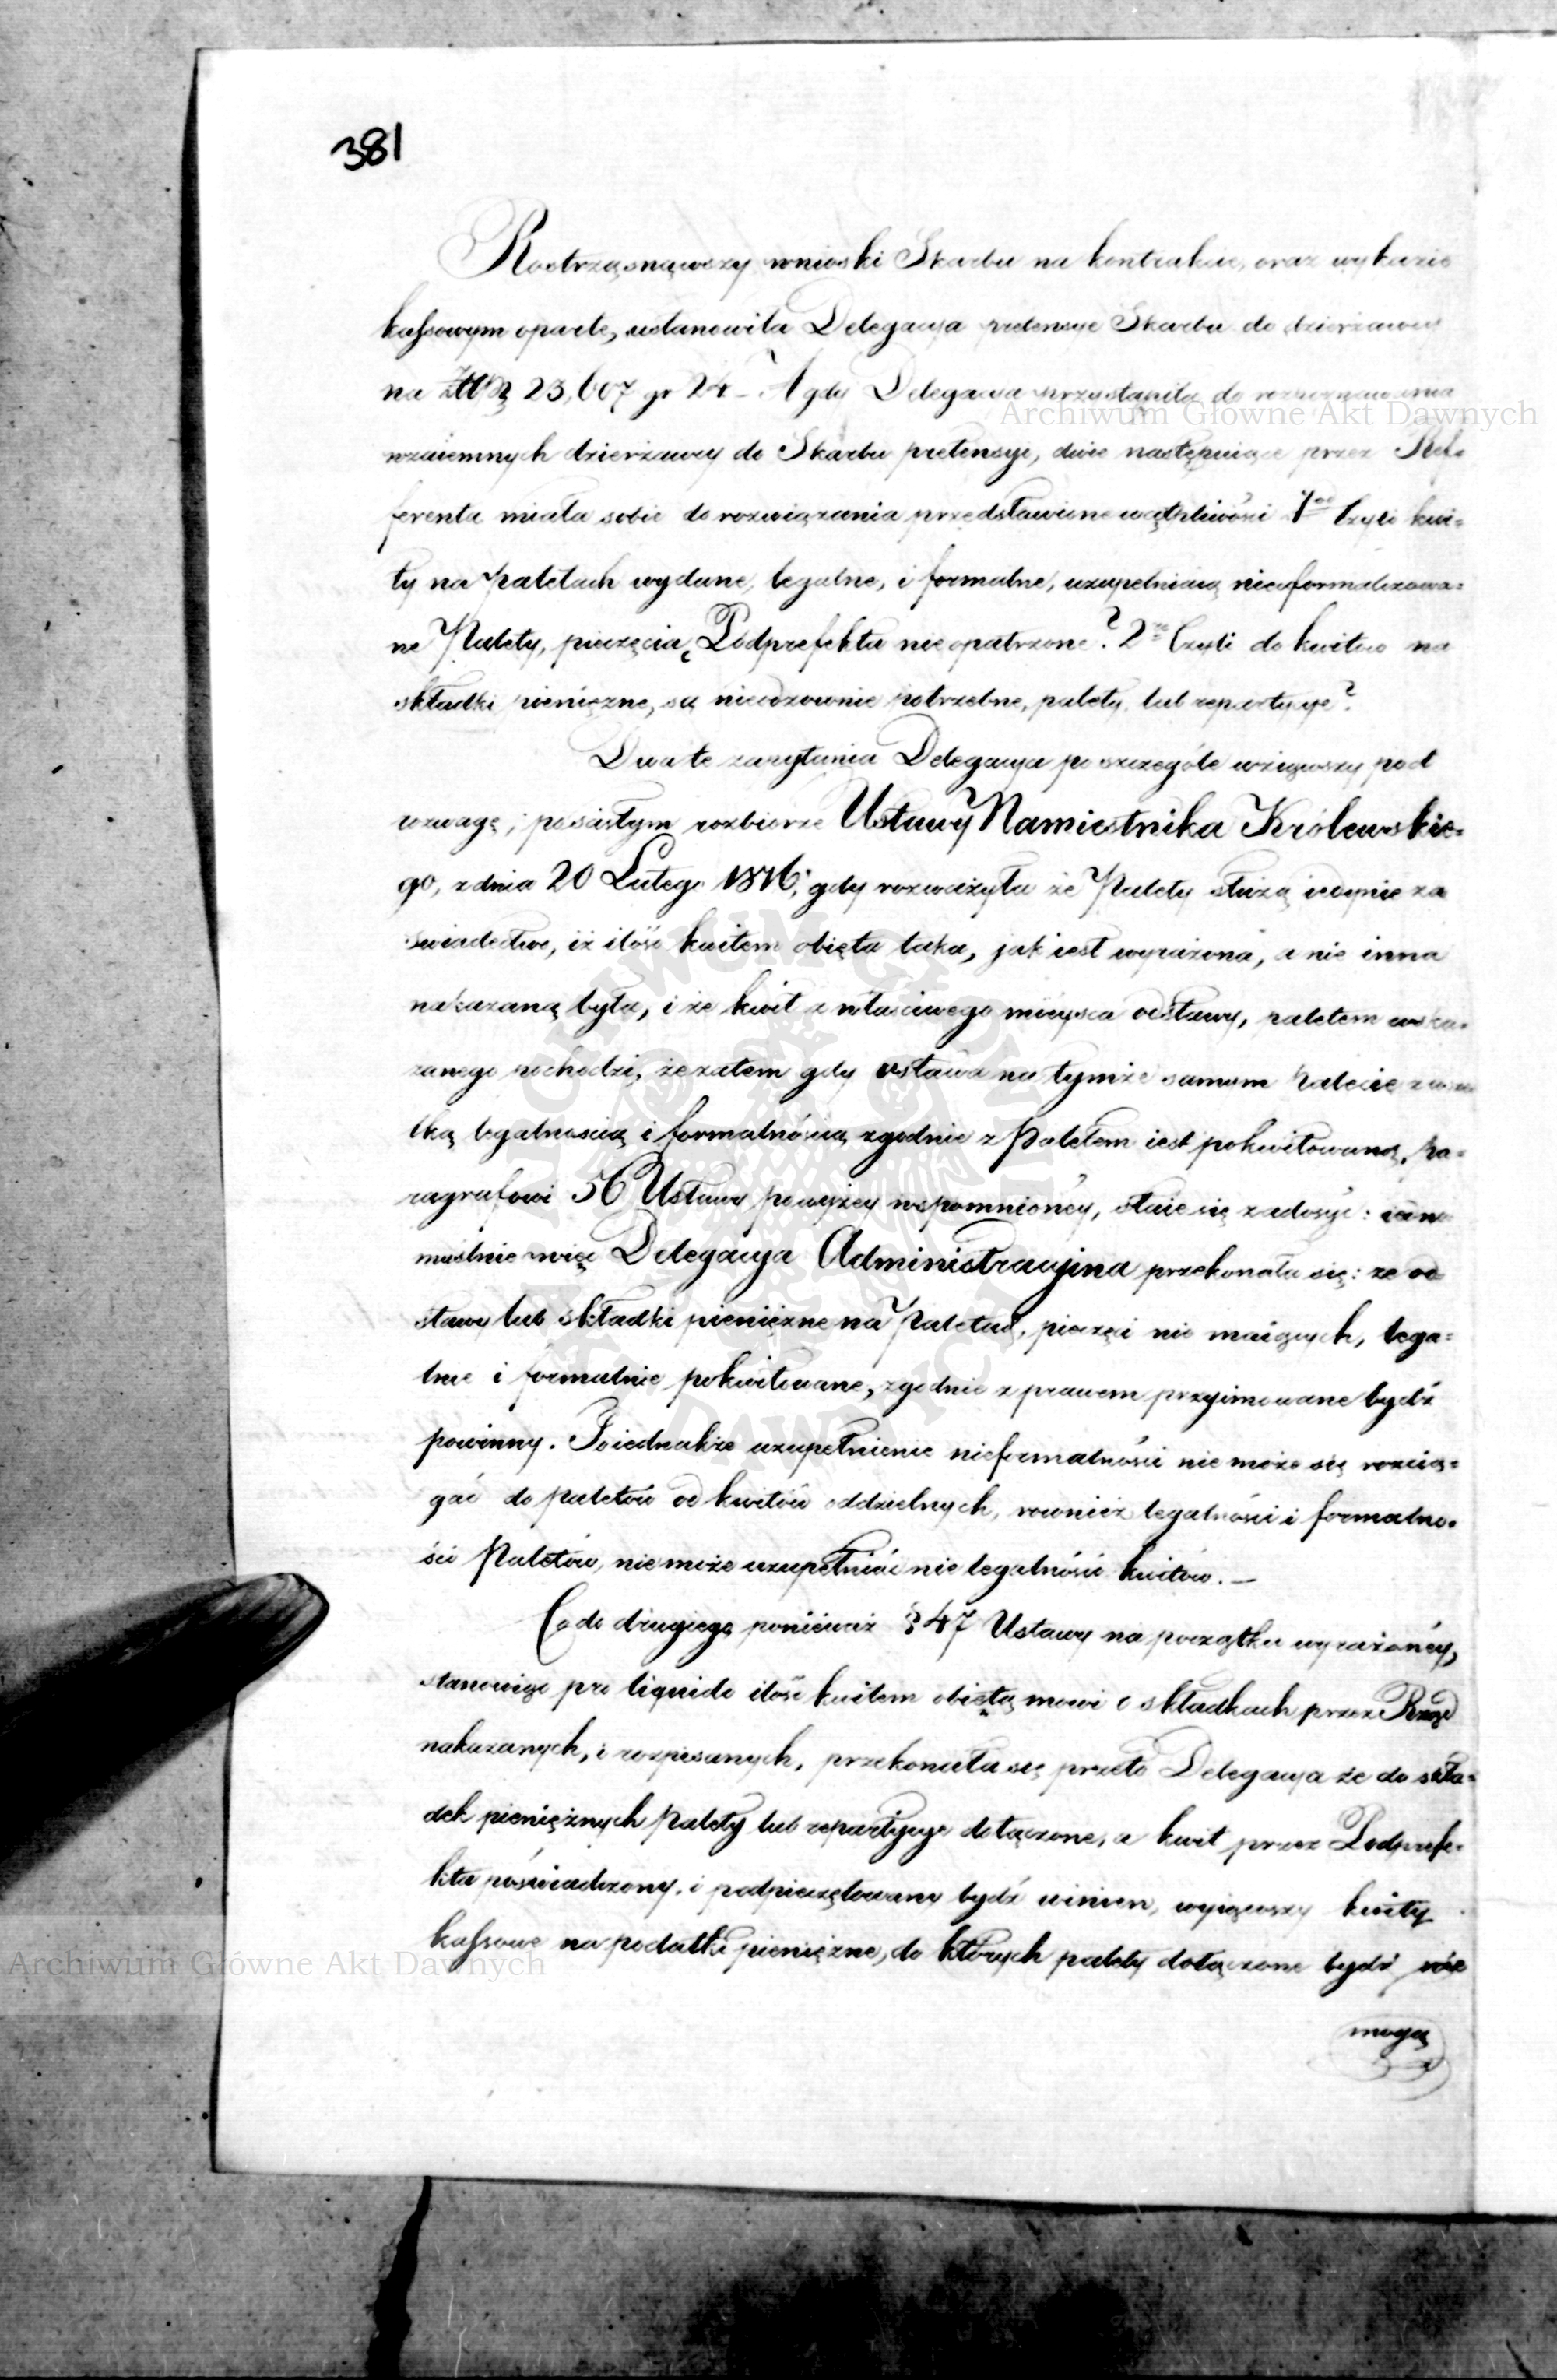 381
Roztrząsnąwszy wnioski Skarbu na kontrakcie, oraz wykazie
kassowym oparte, ustanowiła Delegacya pretensye Skarbu do dzierżawcy
na Złłp 23,607 gr 24 – A gdy Delegacya przystąpiła do rozpoznawania
Archiwum Główne Akt Dawnych
wzaiemnych dzierżawcy do Skarbu pretensyi, dwie następuiące przez Ref-
ferenta miała sobie do rozwiązania przedstawione wątpliwości 1mo Czyli kwi-
ty na Paletach wydane, legalne, i formalne, uzupełniaią nieuformalizowa-
ne Palety, pieczęcią Podprefekta nie opatrzone? 2do Czyli do kwitów na
składki pieniężne, są nieodzownie potrzebne, palety, lub repartycye?
Dwa te zapytania Delegacya po szczególe wziąwszy pod
rozwagę, po ścisłym rozbiorze Ustawy Namiestnika Królewskie-
go, z dnia 20 Lutego 1816; gdy rozważyła że Palety służą iedynie za
świadectwo, iż ilość kwitem obięta taka, jak iest wyrażona, a nie inna
nakazaną była, i że kwit z właściwego mieysca odstawy, paletem wska-
zanego pochodzi, że zatem gdy odstawa na tymże samym Palecie z wszel
ką legalnością i formalnością zgodnie z Paletem iest pokwitowaną, Pa-
ragrafowi 56 Ustawy powyżey wspomnioney, staie się zadosyć: iedno
myślnie więc Delegacya Administracyjna przekonała się: że od-
stawy lub składki pieniężne na Paletach, pieczęci nie maiących, lega-
lnie i formalnie pokwitowane, zgodnie z prawem przyimowane bydź
powinny. To iednakże uzupełnienie nieformalności nie może się rozcią-
gać do paletów od kwitów oddzielnych, rownież legalności i formalno-
ści Paletów, nie może uzupełniać nie legalność kwitów. –
Co do drugiego ponieważ § 47 Ustawy na początku wyrażoney,
stanowiąc pro liquido ilość kwitem obiętą mowi o składkach przez Rząd
nakazanych, i rozpisanych, przekonała się przeto Delegacya że do skła-
dek pieniężnych Palety lub repartycye dołączone, a kwit przez Podprefe-
kta poświadczony, i podpieczętowany bydź winien, wyiąwszy kwity
kassowe na podatki pieniężne, do których palety dołączone bydź nie
Archiwum Główne Akt Dawnych
mogą